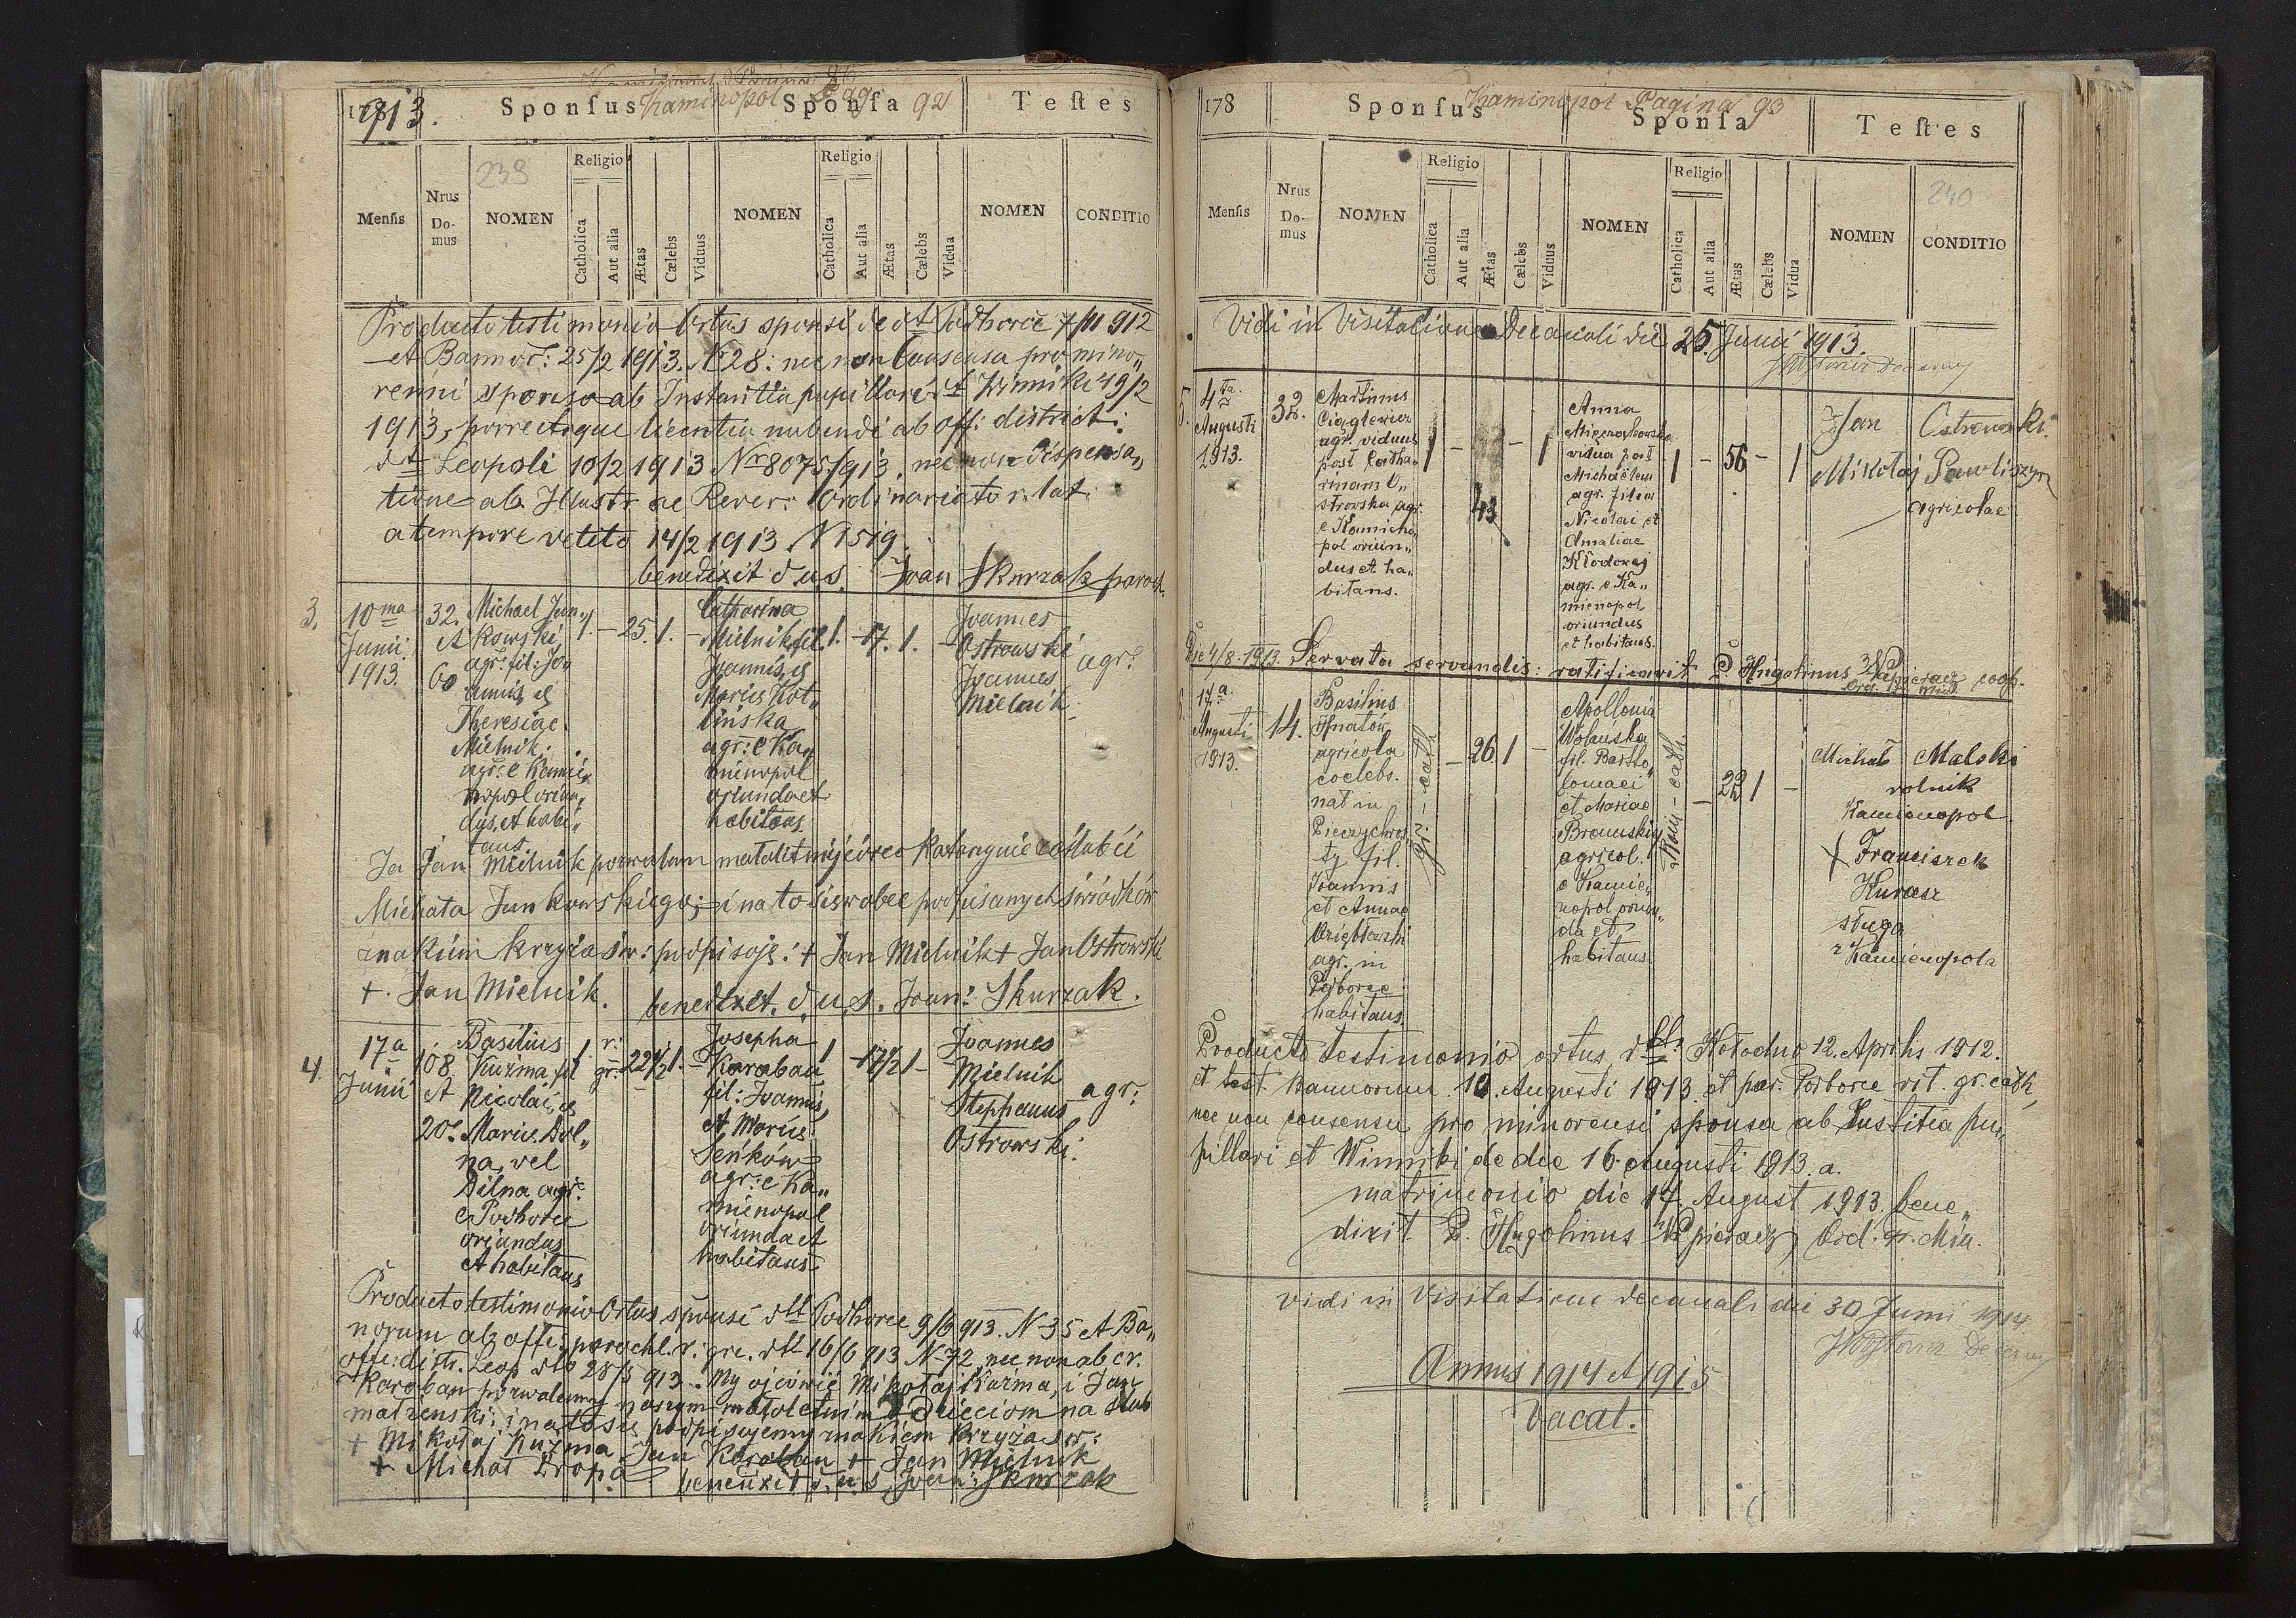 1913.
Sponsus Kaminopol Sponsa Pag. 92 Testes
239
Mensis
Nrus Do-mus
NOMEN
Religio
Catholica
Aut alia
Ætas
Cælebs
Viduus
NOMEN
Religio
Catholica
Aut alia
Ætas
Cælebs
Vidua
NOMEN
CONDITIO
Producto testimonio Ortus sponsi de dt Podhorce 7/11 912
et Bannor: 25/2 1913. Nr 28: nec non Consensu pro mino„
renni sponso ab Instantia pupillari dt Winniki 19/2
1913, porrectaque licentia nubendi ab off: district:
dt Leopoli 10/2 1913 Nr 8075/913, nec non dispensa„
tione ab Illustr ac Rever: Ordinariato r. lat.
a tempore vetito 14/2 1913 N 1519.
benedixit d u s. Joan Skurzak paroch.
3.
10 ma
Junii.
1913.
32.
et
60
Michael Jan„
kowski
agr: fil: Jo„
annis, et
Theresiae
Mielnik.
agr: e Kamie„
nopol oriun„
dus, et habi„
tans
1. – 25. 1. –
Catharina
Mielnik, fil.
Joannis, et
Mariae Kot„
linska
agr: e Ka„
mienopol
oriunda et
habitans
1. – 17. 1. –
Joannes
Ostrowski
Joannes
Mielnik.
agr:
Ja Jan Mielnik pozwalam małolitniej córce Katarzynie zaślubić
Michała Jankowskiego; i na to się wobec podpisanych świadków
znakiem krzyża św: podpisuję: + Jan Mielnik + Jan Ostrowski
+ Jan Mielnik.
benedixit. d. u. s. Joan: Skurzak.
4.
17 a
Junii
108.
et
20.
Basilius
Kuzma, fil
Nicolai, et
Mariae Dol„
na, vel
Dilna agr:
e Podhorce
oriundus
et habitans
1. r: gr: 22 1/2 1. –
Josepha
Karaban
fil: Joannis,
et Mariae
Seńków
agr: e Ka„
mienopol
oriunda et
habitans
1 – 17 1/2 1 –
Joannes
Mielnik
Stephanus
Ostrowski.
agr:
Producto testimonio Ortus sponsi dtt Podhorce 9/6 913. N 35 et Ba„
norum ab offi: parochl. r: gre. dtt 16/6 913 N 72, nec non ab cr.
offi: distr. Leop dto 28/5 913. My ojcowie Mikołaj Kuzma, i Jan
Karaban pozwalamy naszym małoletnim dzieciom na ślub
małżenski; i na to się podpisujemy znakiem krzyża św:
+ Mikołaj Kuzma Jan Karaban + Jan Mielnik
+ Michał Dropa
benedixit d. u. s. Joan: Skurzak
178
Sponsus Kaminopol Pagina 93
Sponsa
Testes
240
Mensis
Nrus Do-mus
NOMEN
Religio
Catholica
Aut alia
Ætas
Cælebs
Viduus
NOMEN
Religio
Catholica
Aut alia
Ætas
Cælebs
Vidua
NOMEN
CONDITIO
Vidi in Visitatione Decanali die 25. Junii 1913.
5.
4 ta
Augusti
1913.
32.
Martinus
Ciąglewicz
agr. viduus
post Catha„
rinam O„
strowska agr.
e Kamieno„
pol oriun„
dus et ha„
bitans.
1 – 43 – 1
Anna
vidua post
Michaelem
agr. filia
Nicolai et
Amaliae
Kłodowej
agr. e Ka„
mienopol
oriundus
et habitans.
1 – 56 – 1
Jan Ostrowski.
Mikołaj Pawliszyn
agricolae
Die 4/8 1913. Servata servandis: ratificavit P. Hugolinus coop.
17 a
Augusti
1913.
14.
Basilius
Hnatów
agricola
coelebs.
nat in
fil.
Joannis
et Annae
agr. in
habitans.
gr. – cath.
– 26 1 –
Apollonia
Wolańska
fil. Bartho„
lomaei
et Mariae
agricol.
e Kamie„
nopol oriun„
da et
habitans.
Rom – cath.
– 22 1 –
Michał Malski
rolnik
Kamienopol
+ Franciszek
Kurasz
sługa
z Kamienopola
Producto testimonio ortus dtt. Hołodno 12. Aprilis 1912.
et test. bannorum 10. Augusti 1913. et par. Podborce rit. gr. cath,
nec non consensu pro minorensi sponsa ab Institia pu„
pillari et Winniki de die 16. Augusti 1913. a.
matrimonio die 17. August 1913. bene„
dixit P. Hugolinus Ord. Fr. Min.
Vidi in Visitatione decanali die 30 Junii 1914
Annus 1914 et 1915
Vacat.